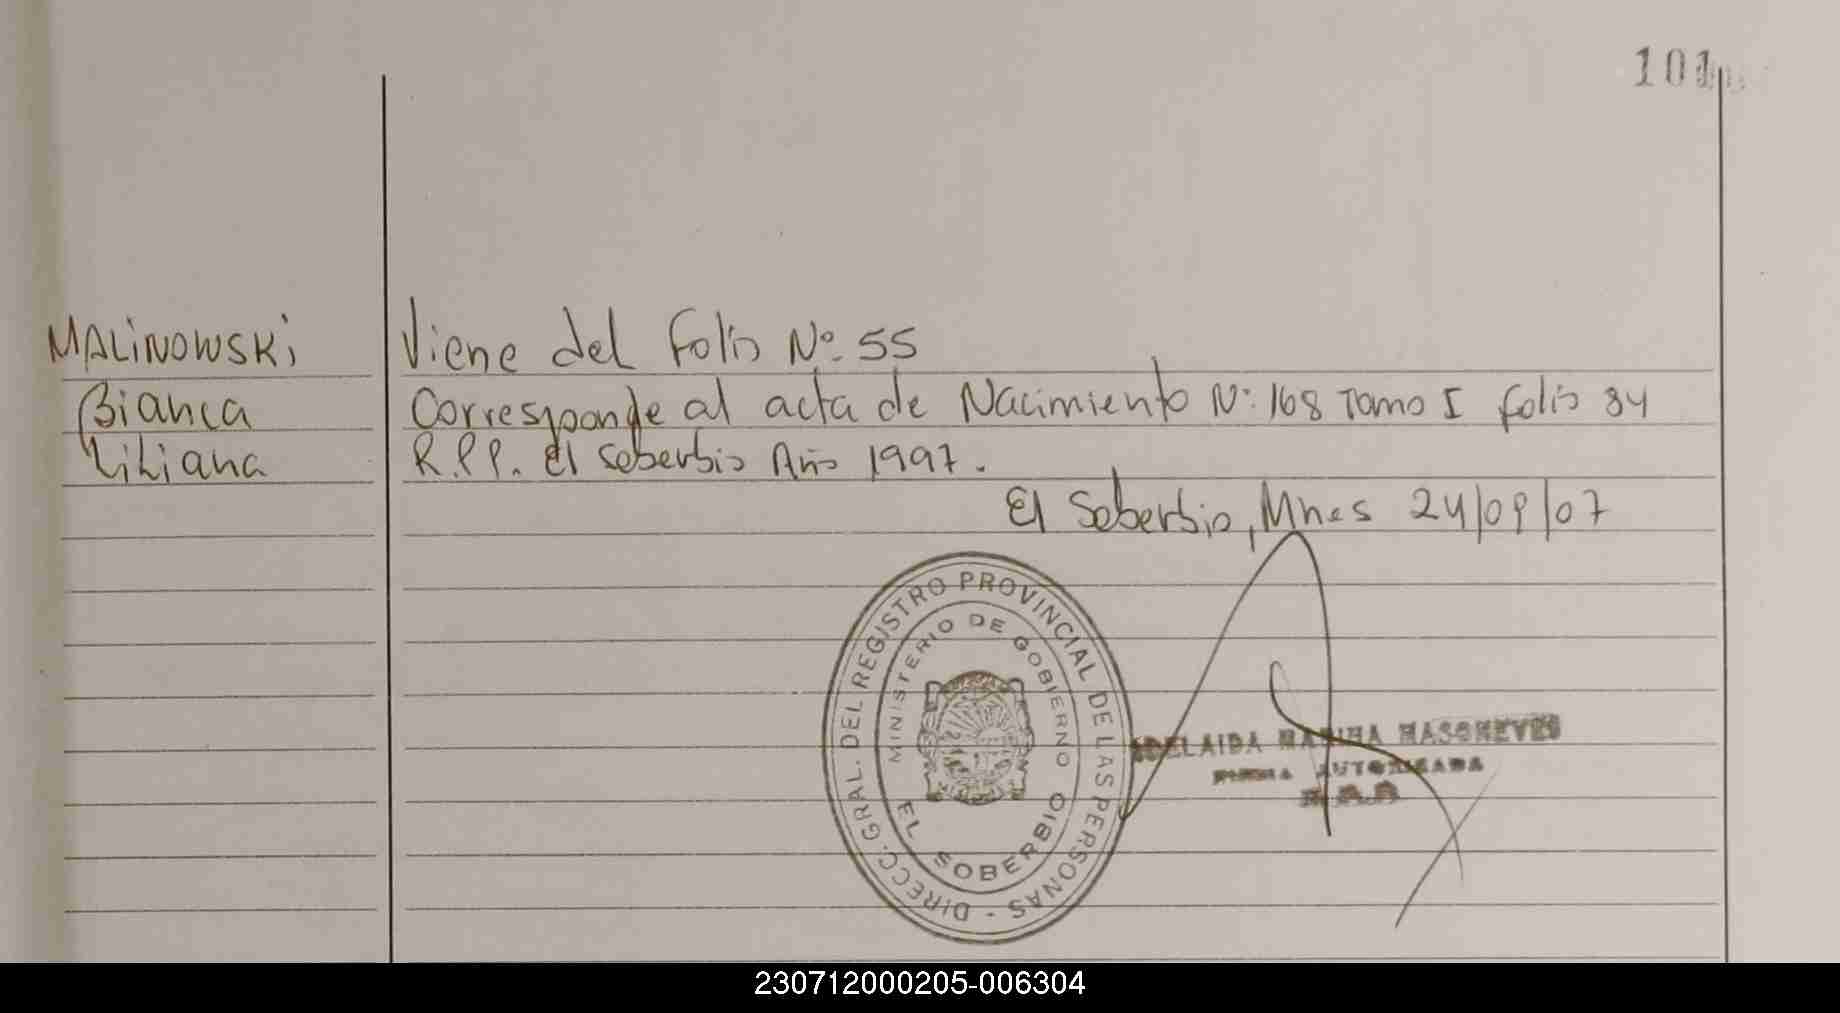 101
MALINOWSKI
Bianca
Liliana
Viene del Folio Nº 55
Corresponde al acta de Nacimiento Nº 168 Tomo I folio 84
R.P.P. El Soberbio Año 1997.
El Soberbio, Mnes 24/09/07
DIRECC. GRAL. DEL REGISTRO PROVINCIAL DE LAS PERSONAS -
MINISTERIO DE GOBIERNO
EL SOBERBIO
ADELAIDA MARINA
FIRMA AUTORIZADA
230712000205-006304